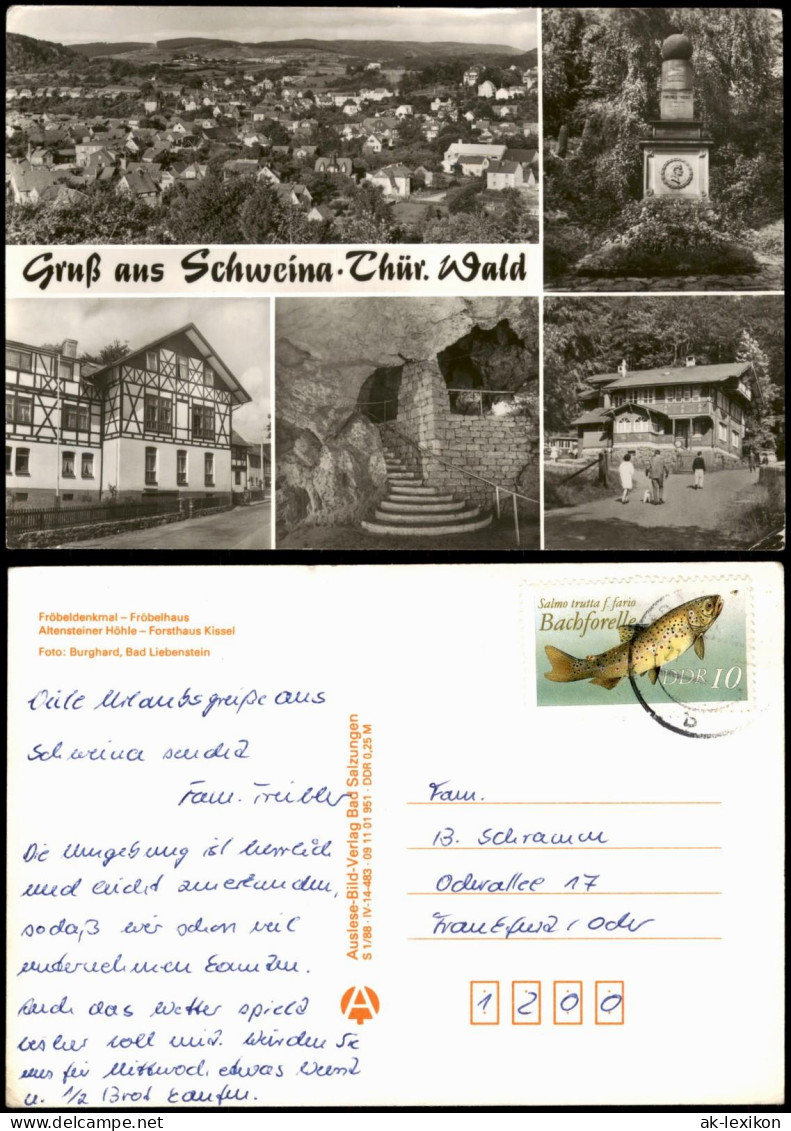 Gruß aus Schweina · Thür. Wald
Fröbeldenkmal – Fröbelhaus
Altensteiner Höhle – Forsthaus Kissel
Foto: Burghard, Bad Liebenstein
Salmo trutta f. fario
Bachforelle
DDR 10
Urlaubsgrüße aus
Schweina sendet
Fam.
Die Umgebung ist herrlich
und leicht zu erkunden,
sodaß wir schon viel
unternehmen konnten.
Auch das Wetter spielt
bisher toll mit. Würden Sie
uns für Mittwoch etwas Wurst
u. 1/2 Brot kaufen.
Auslese-Bild-Verlag Bad Salzungen
S 1/88 · IV-14-483 · 09 11 01 951 · DDR 0,25 M
Fam.
B. Schramm
Oderallee 17
Frankfurt / Oder
1 2 0 0
ak-lexikon